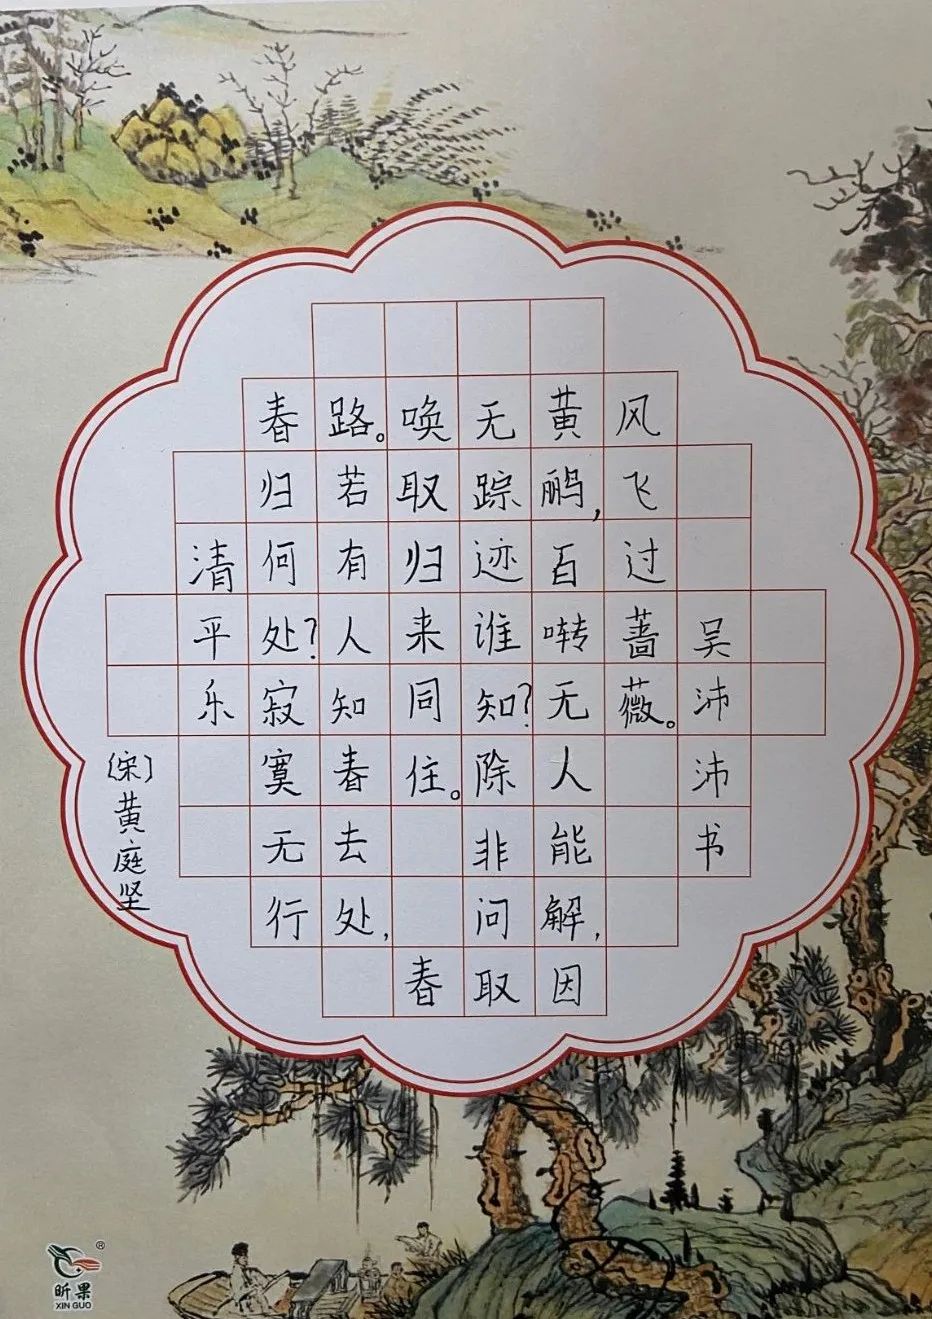 清平乐
〔宋〕黄庭坚
春归何处?寂寞无行
路。若有人知春去处,
唤取归来同住。春
无踪迹谁知?除非问取
黄鹂,百啭无人能解,因
风飞过蔷薇。
吴沛沛书
®
昕果
XIN GUO